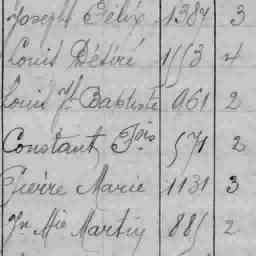 Joseph Félix 1387 3
Louis Désiré 1553 4
Louis Jn Baptiste 961 2
Constant Fois 571 2
Pierre Marie 1131 3
Jn Mie Martin 885 2